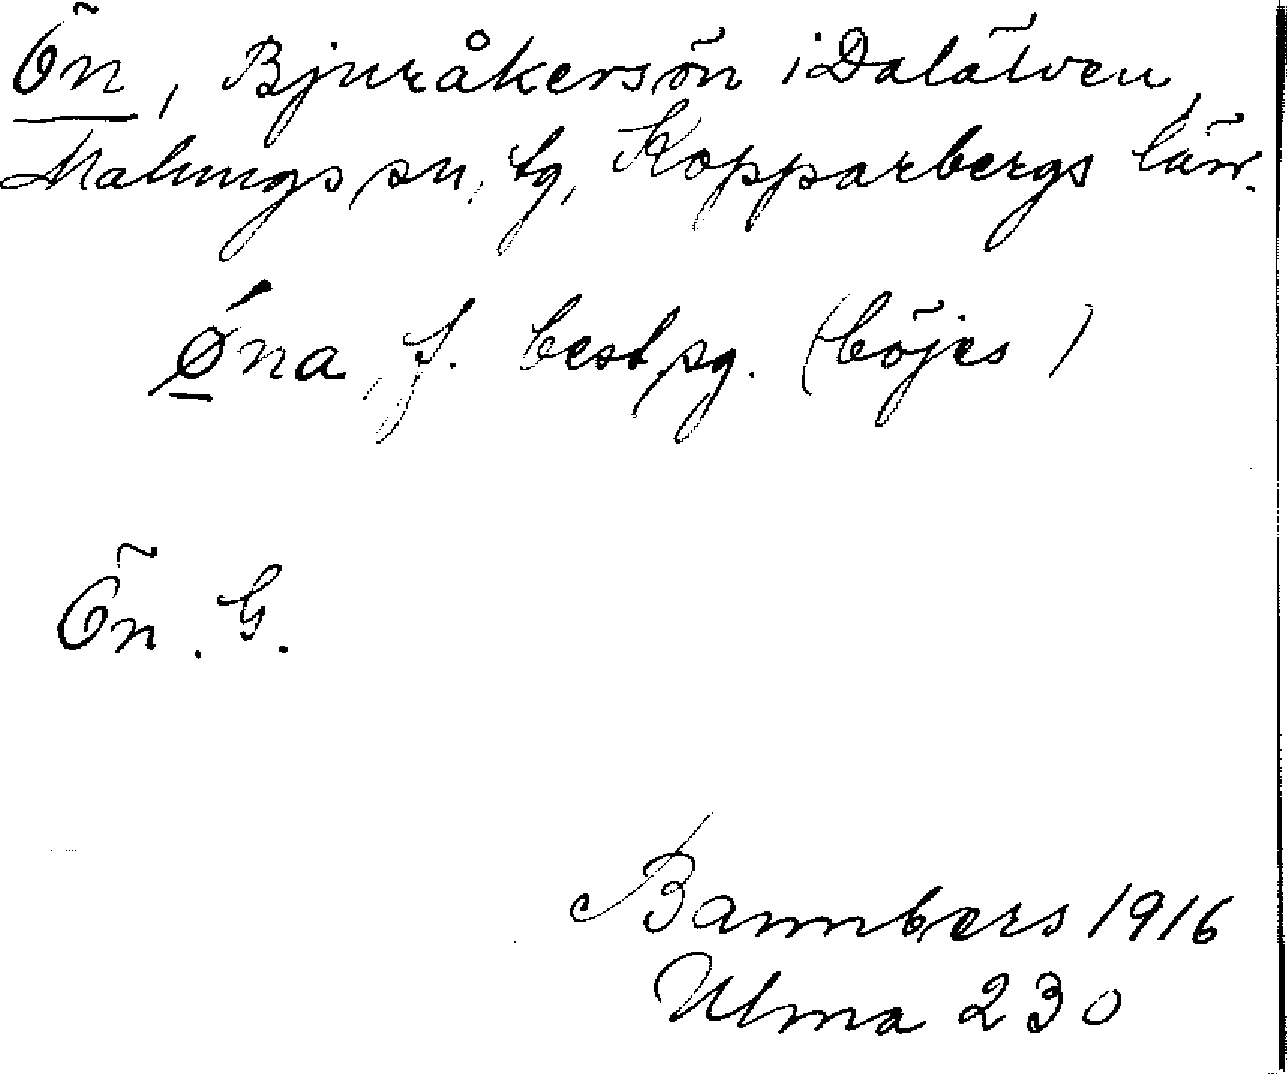 Ön, Bjuråkersön i Dalälven,
Malungs sn, tg, Kopparbergs län.
Ǿna, f. best sg. (böjes)
Ön. G.
Bannbers 1916
Ulma 230